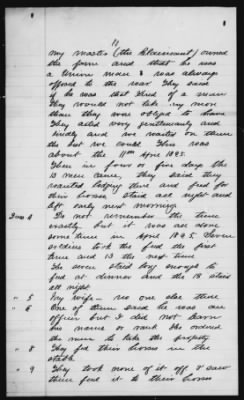 11
my master (the Claimant) owned
the farm and that he was
a Union man & was always
opposed to the war. They said
if he was that kind of a man
They would not take any more
than they was obliged to have
They acted very gentlemanly and
kindly and we waited on them
the best we could. This was
about the 11th Apl 1865.
Then in four or five days the
13 men came, they said they
wanted lodging there and feed for
their horses staid all night and
left early next morning.
4 Do not remember the time
exactly but it was
some time in April 1865. Seven
soldiers took the feed the first
time and 13 the next time
The seven staid long enough to
feed at dinner and the 13 staid
all night
" 5 My wife - no one else there
" 6 One of them said he was an
officer but I did not learn
his name or rank. He ordered
the men to take the property
" 8 They fed their horses in the
stable
" 9 They took none of it off. I saw
them feed it to their horses